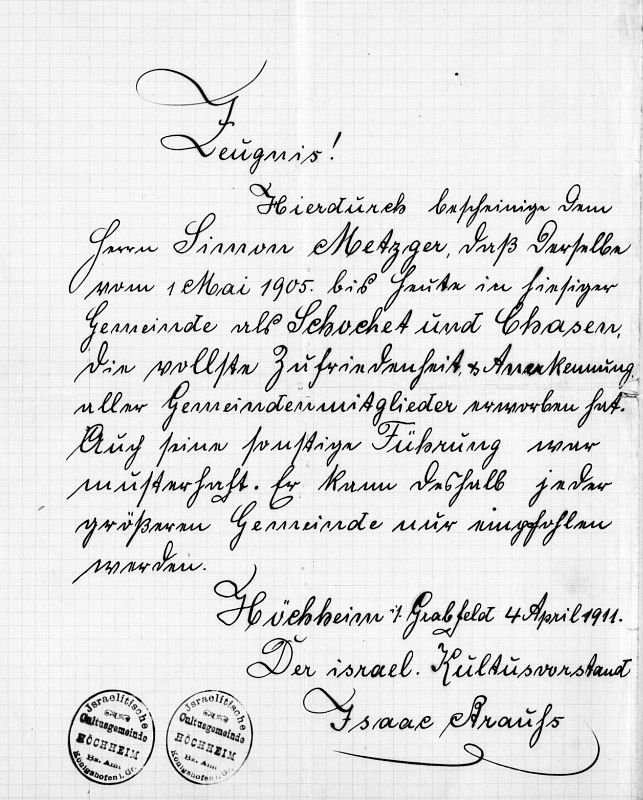 Zeugnis!
Hierdurch bescheinige dem
Herrn Simon Metzger, daß derselbe
vom 1 Mai 1905. bis heute in hiesiger
Gemeinde als Schochet und Chasen,
die vollste Zufriedenheit, & Anerkennung
aller Gemeindenmitglieder erworben hat.
Auch seine sonstige Führung war
musterhaft. Er kann deshalb jeder
größeren Gemeinde nur empfohlen
werden.
Höchheim i/ Grabfeld 4 April 1911.
Der israel. Kultusvorstand
Isaac Strauss
Israelitische
Cultusgemeinde
HÖCHHEIM
Bz. Amt
Königshofen i. Gr.
Israelitische
Cultusgemeinde
HÖCHHEIM
Bz. Amt
Königshofen i. Gr.